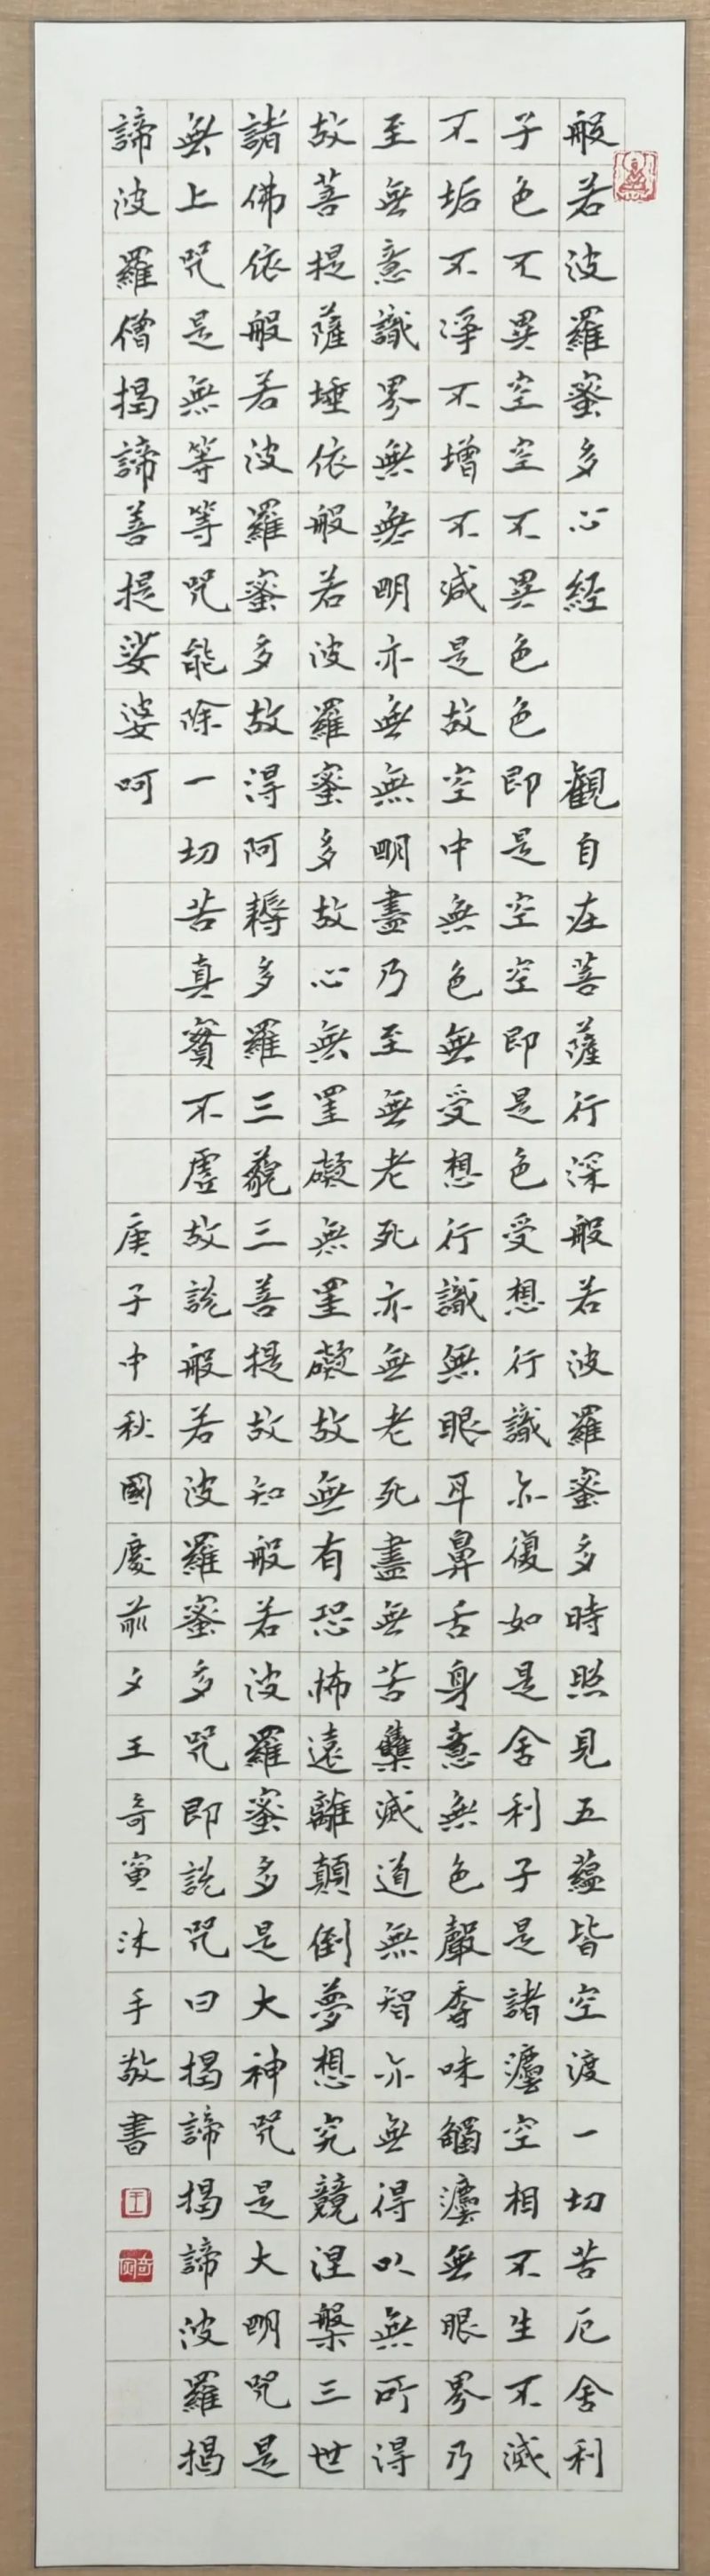 般若波羅蜜多心經觀自在菩薩行深般若波羅蜜多時照見五蘊皆空渡一切苦厄舍利
子色不異空空不異色色即是空空即是色受想行識亦復如是舍利子是諸灋空相不生不滅
不垢不淨不增不減是故空中無色無受想行識無眼耳鼻舌身意無色聲香味觸灋無眼界乃
至無意識界無無明亦無無明盡乃至無老死亦無老死盡無苦集滅道無智亦無得以無所得
故菩提薩埵依般若波羅蜜多故心無罣礙無罣礙故無有恐怖遠離顛倒夢想究竟涅槃三世
諸佛依般若波羅蜜多故得阿耨多羅三藐三菩提故知般若波羅蜜多是大神咒是大明咒是
無上咒是無等等咒能除一切苦真實不虛故說般若波羅蜜多咒即說咒曰揭諦揭諦波羅揭
諦波羅僧揭諦菩提娑婆呵庚子中秋國慶前夕王奇寅沐手敬書
王